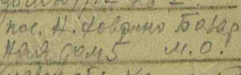 пос. Н. Ховрино Базар
ная дом 5 М.О.